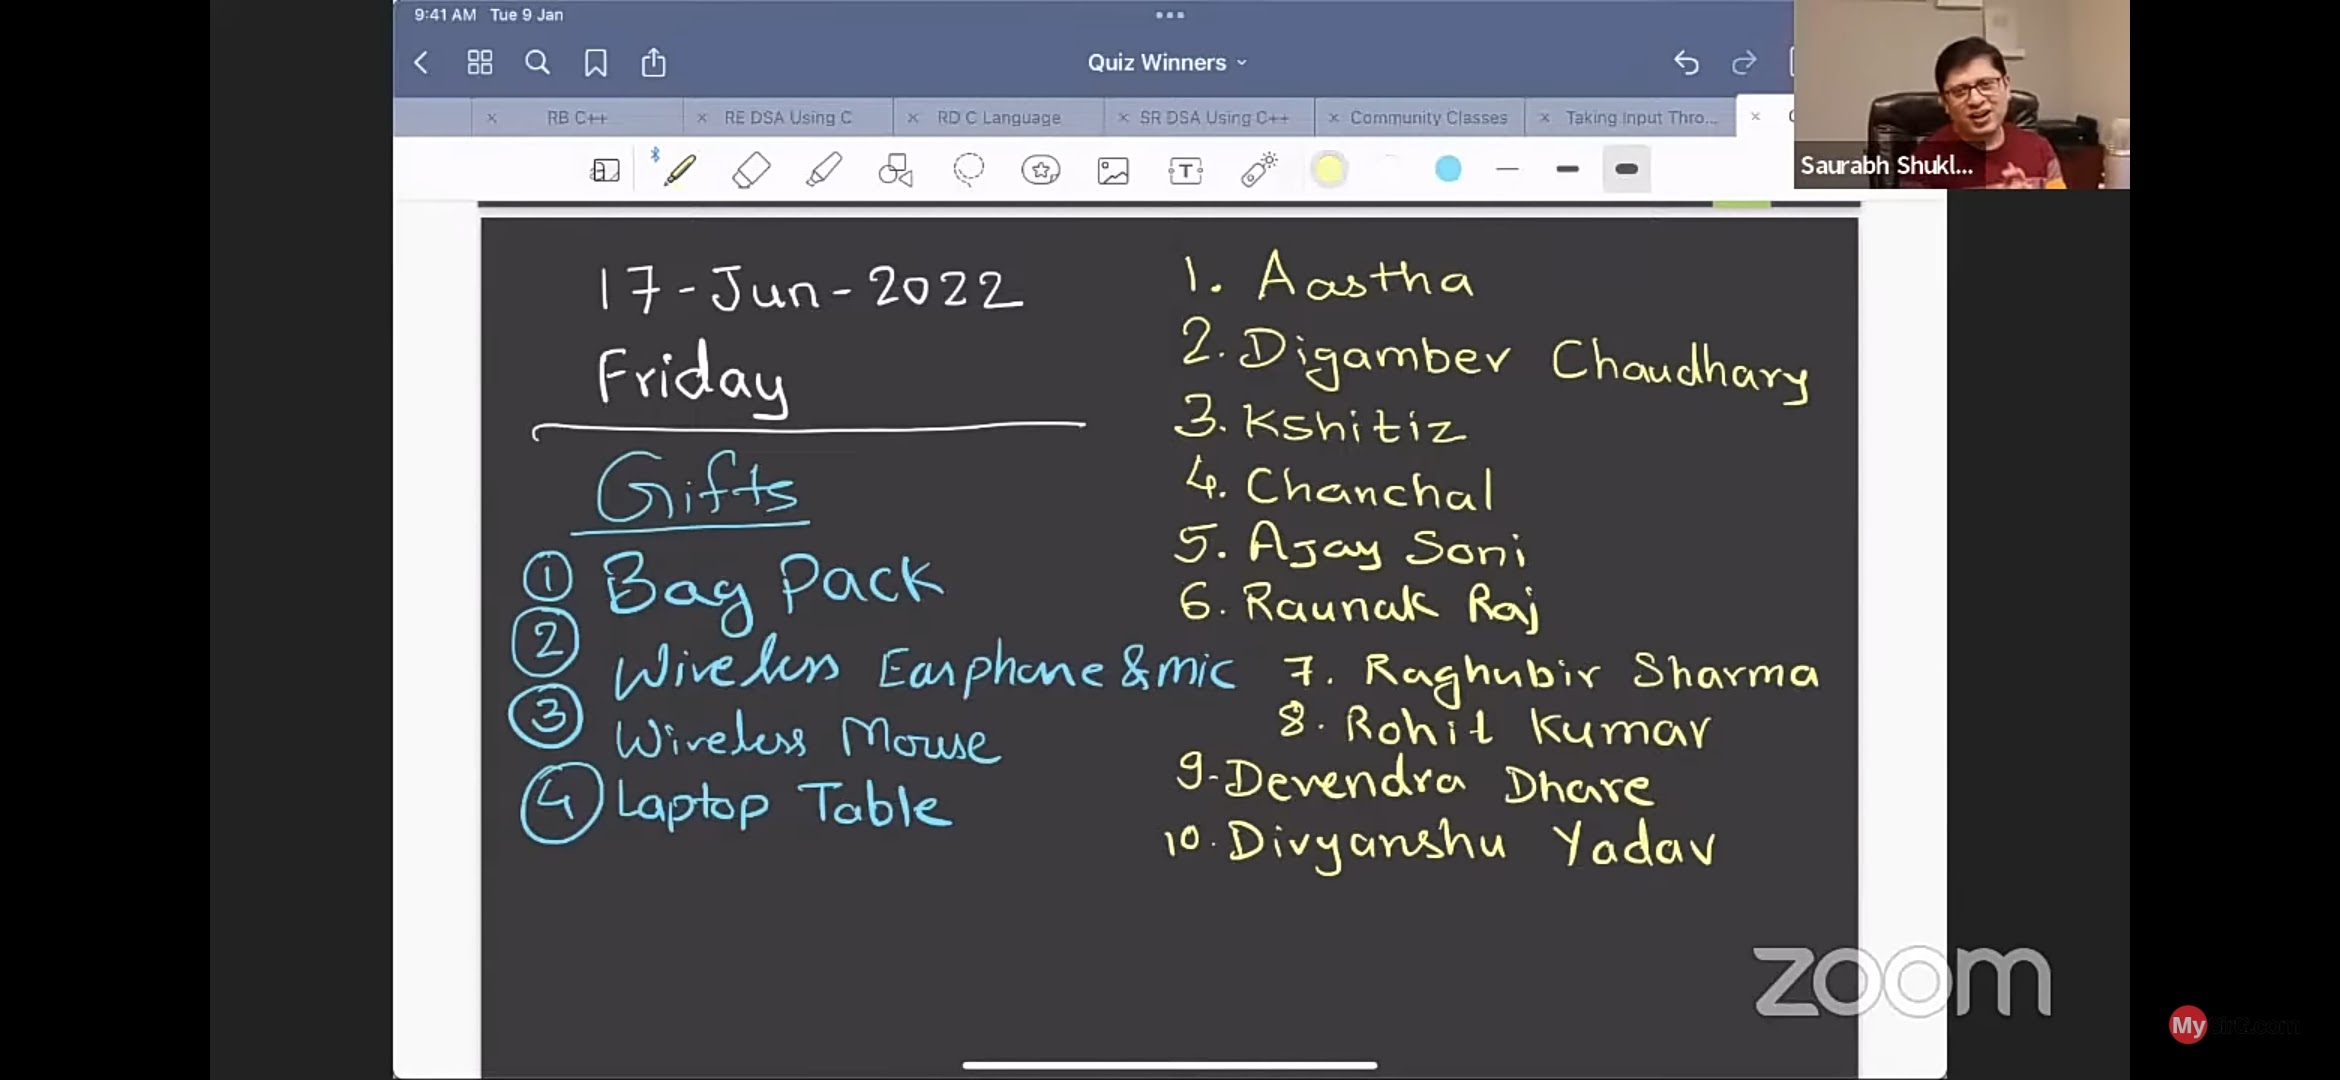 9:41 AM Tue 9 Jan
Quiz Winners
RB C++
RE DSA Using C
RD C Language
SR DSA Using C++
Community Classes
Taking Input Thro...
Saurabh Shukl...
17-Jun-2022
Friday
Gifts
1 Bag Pack
2 Wireless Earphone & mic
3 Wireless Mouse
4 Laptop Table
1. Aastha
2. Digamber Chaudhary
3. Kshitiz
4. Chanchal
5. Ajay Soni
6. Raunak Raj
7. Raghubir Sharma
8. Rohit Kumar
9- Devendra Dhare
10. Divyanshu Yadav
zoom
MySirG.com